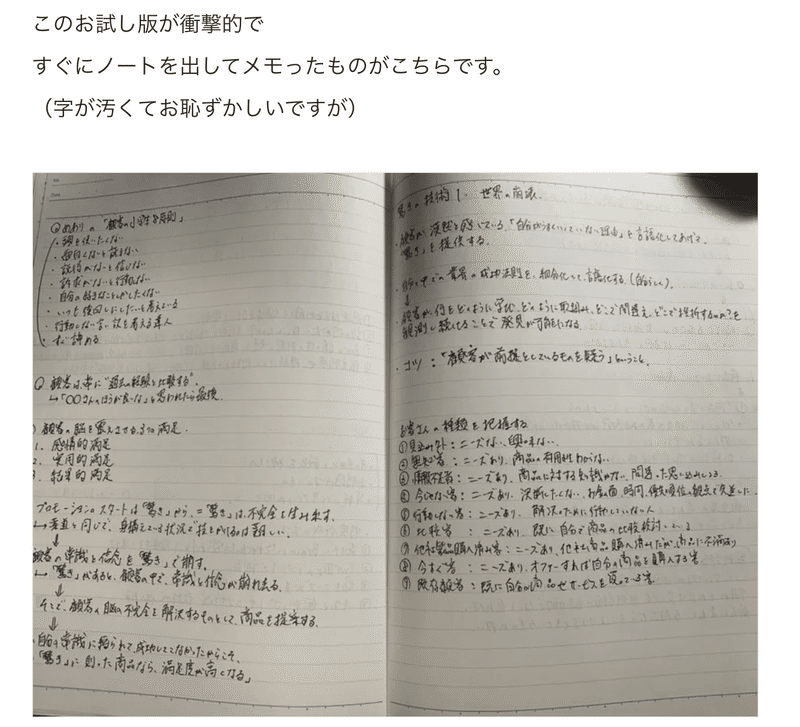 このお試し版が衝撃的で
すぐにノートを出してメモったものがこちらです。
（字が汚くてお恥ずかしいですが）
・頭を使いたくない
・面白くないと読まない
・説得がないと信じない
・訴求がないと行動しない
・自分の好きなことしかしたくない
・行動しない言い訳を考える達人
・すぐ諦める
Q 顧客は、常に"過去の経験と比較する"。
↳「〇〇さんのほうが良いな」と思われたら最後。
顧客の脳を震えさせる3つの満足。
1. 感情的満足
2. 実用的満足
3. 結果的満足
プロモーションのスタートは「驚き」から。=「驚き」は、不完全を生み出す。
↳柔道と同じで、身構えている状況で技をかけるのは難しい。
↓
顧客の常識と信念を「驚き」で崩す。
↳「驚き」があると、顧客の中で、常識と信念が崩れ去る。
⇓
そこで、顧客の脳の不完全を解決するものとして、商品を提案する。
⇓
自分の常識に縛られて、成功してこなかったからこそ、
「驚き」に則った商品なら、満足度が高くなる」
驚きの技術1. 世界の崩壊.
・顧客が漠然と感じている、「自分がうまくいっていない理由」を言語化してあげて、
「驚き」を提供する。
↓
顧客が、何をどのように学び、どのように取組み、どこで間違え、どこで挫折するのか?を
観測し続けることで発見が可能になる。
・コツ：「顧客が前提としているものを疑う」ということ。
お客さんの種類を把握する
①見込み外：ニーズなし、興味ない。
②無知客：ニーズあり、商品の有用性わからない。
③ ニーズあり、商品に対する知識がない、間違った思い込みしてる。
④今じゃない客：ニーズあり、決断したくない、お金の面、時間、優先順位の観点で
⑤行動しない客：ニーズあり、解決のために行動しない人
⑥比較客：ニーズあり、既に自分で商品の比較検討
⑦他社製品購入済み客：ニーズあり、他社商品購入済みだが、商品に不満あり
⑧今すぐ客：ニーズあり、オファーすれば自分の商品を購入する客
⑨既存顧客：既に自分の商品やサービスを買っている客